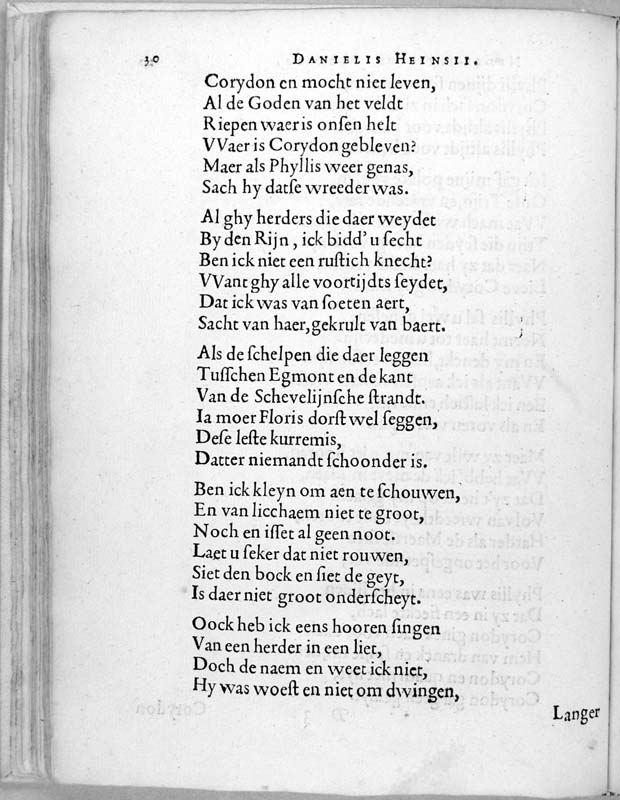 30 DANIELIS HEINSII.
Corydon en mocht niet leven,
Al de Goden van het veldt
Riepen waer is onſen helt
VVaer is Corydon gebleven?
Maer als Phyllis weer genas,
Sach hy datſe wreeder was.
Al ghy herders die daer weydet
By den Rijn, ick bidd' u ſecht
Ben ick niet een ruſtich knecht?
VVant ghy alle voortijdts ſeydet,
Dat ick was van ſoeten aert,
Sacht van haer, gekrult van baert.
Als de ſchelpen die daer leggen
Tuſſchen Egmont en de kant
Van de Schevelijnſche ſtrandt.
Ia moer Floris dorſt wel ſeggen,
Deſe leſte kurremis,
Datter niemandt ſchoonder is.
Ben ick kleyn om aen te ſchouwen,
En van licchaem niet te groot,
Noch en iſſet al geen noot.
Laet u ſeker dat niet rouwen,
Siet den bock en ſiet de geyt,
Is daer niet groot onderſcheyt.
Oock heb ick eens hooren ſingen
Van een herder in een liet,
Doch de naem en weet ick niet,
Hy was woeſt en niet om dwingen,
Langer